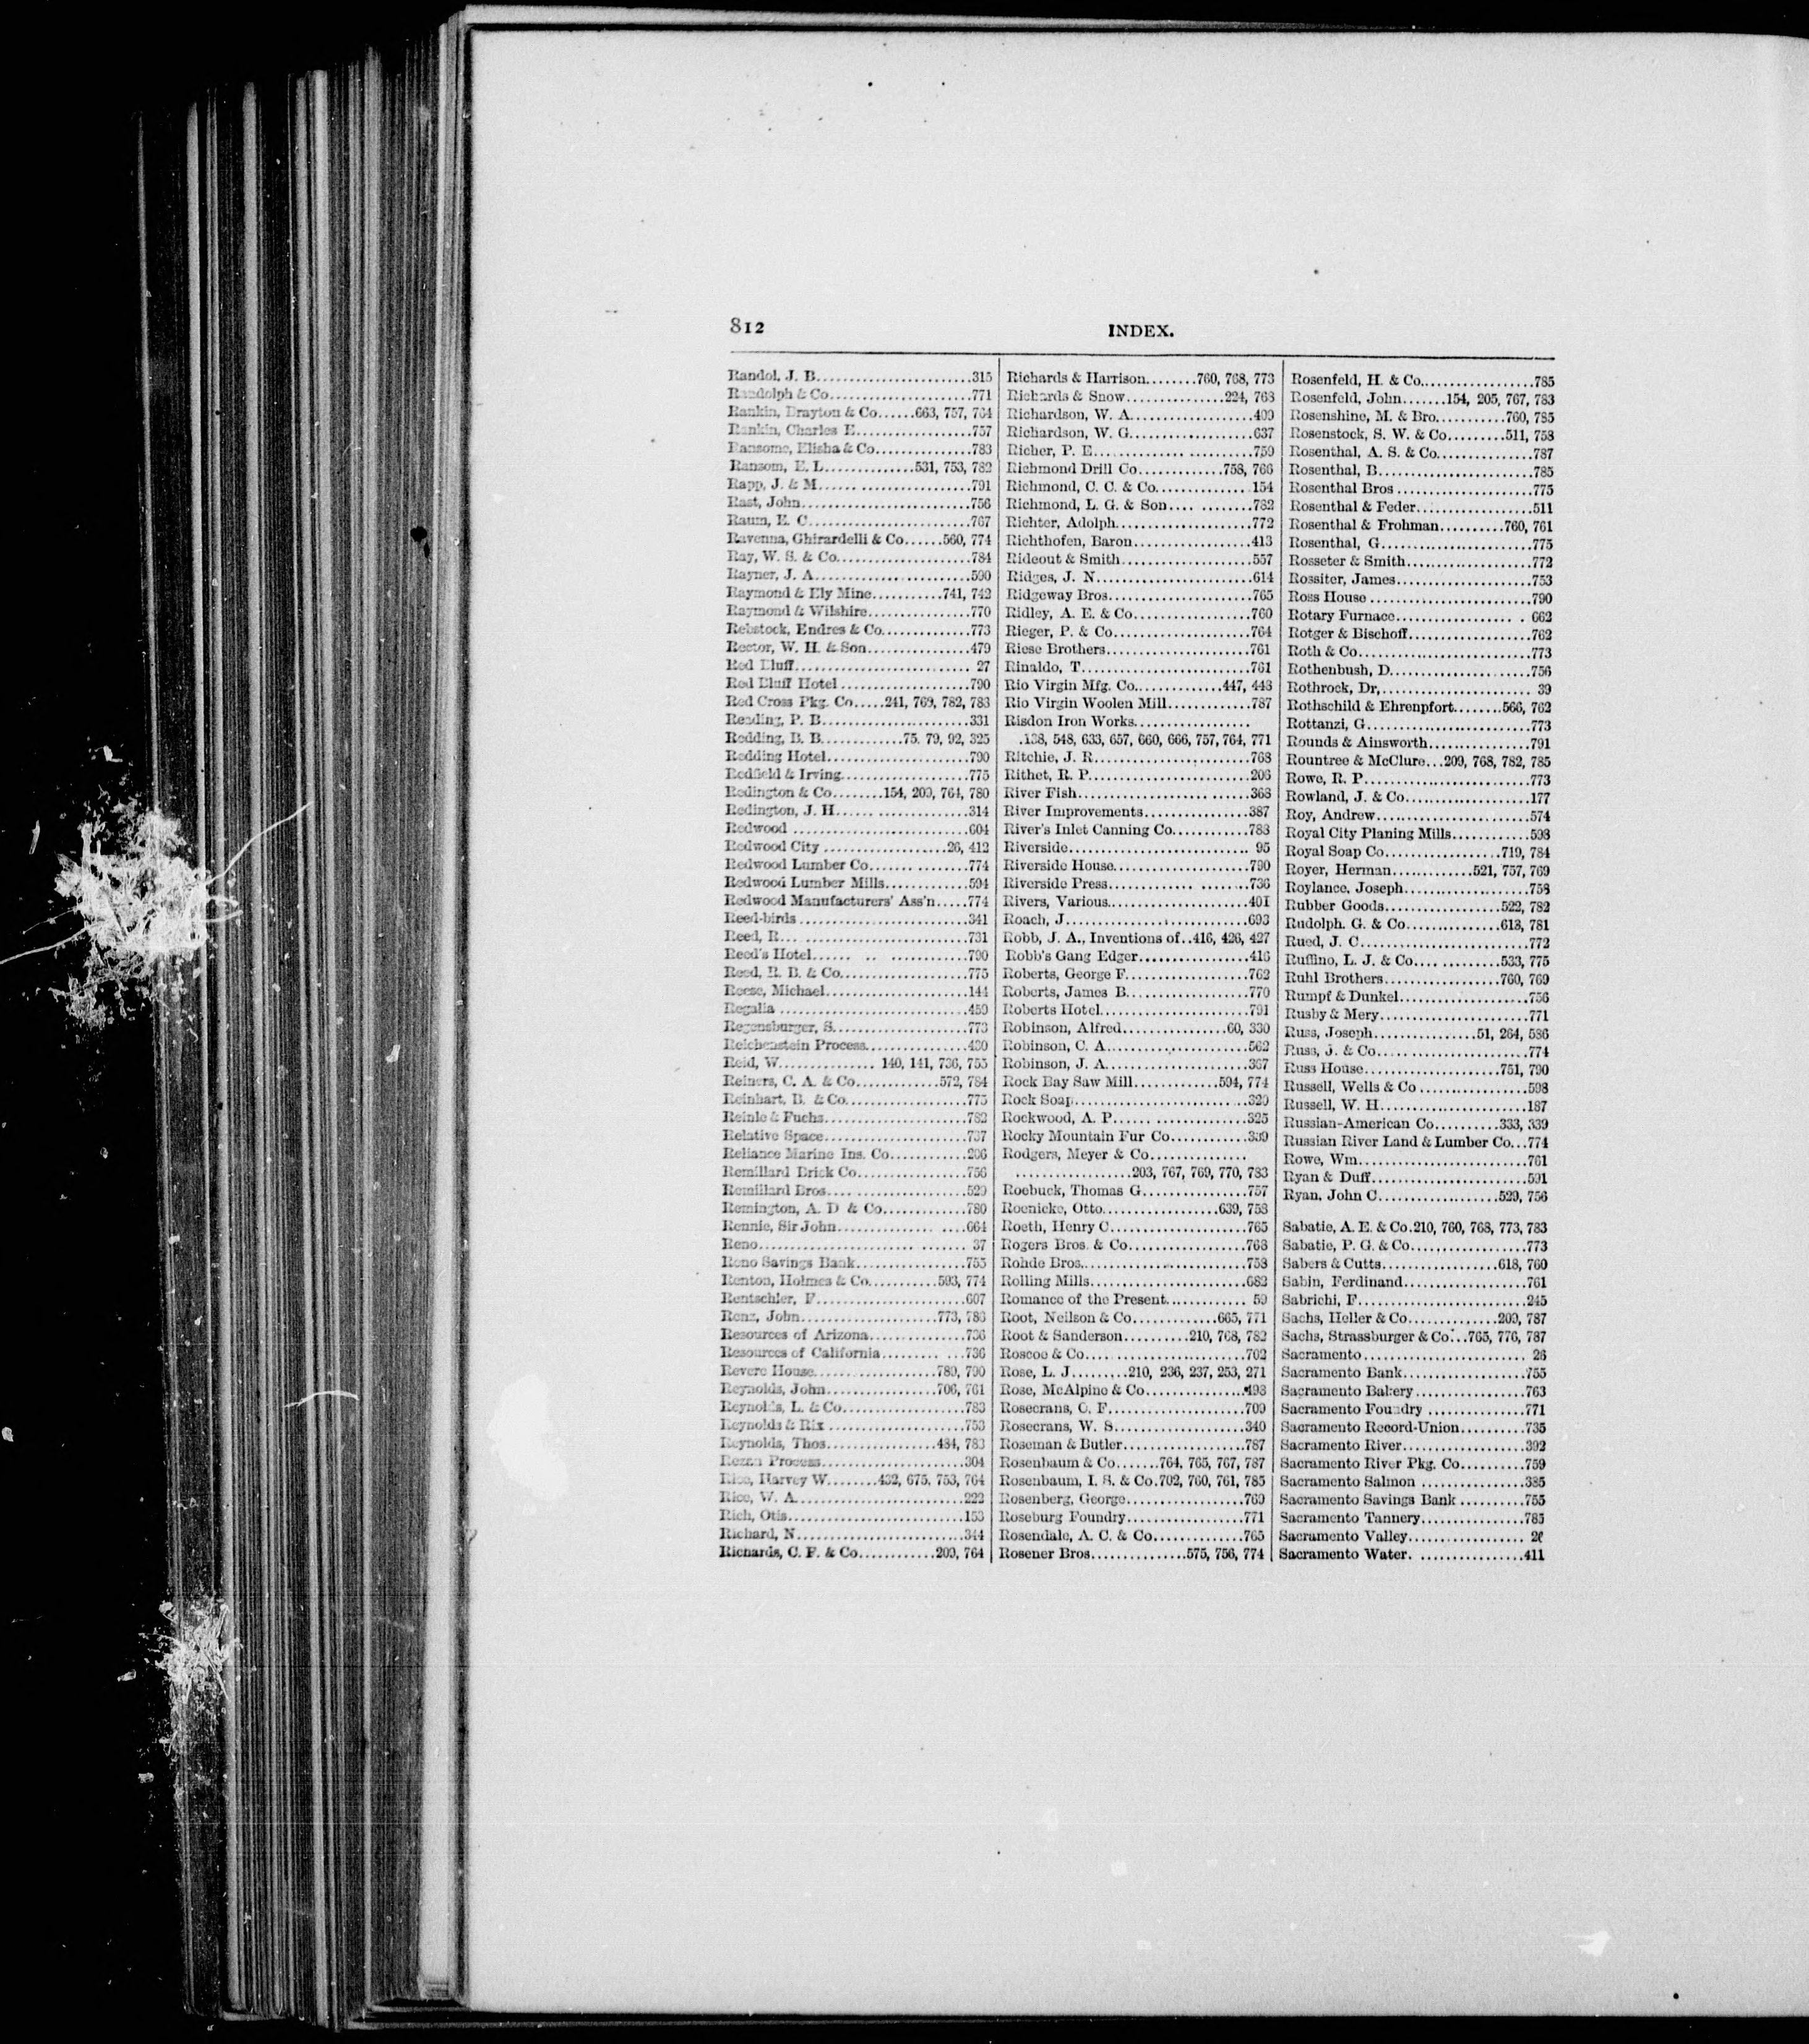 812
INDEX.
Randol, J. B.......................315
Randolph & Co.....................771
Rankin, Brayton & Co......663, 757, 764
Rankin, Charles E.................757
Ransome, Elisha & Co..............783
Ransom, E. L..............531, 753, 782
Rapp, J. & M...... ................791
Rast, John.........................756
Raum, E. C........................767
Ravenna, Ghirardelli & Co......560, 774
Ray, W. S. & Co....................784
Rayner, J. A.......................590
Raymond & Ely Mine...........741, 742
Raymond & Wilshire...............770
Rebstock, Endres & Co.............773
Rector, W. H. & Son...............479
Red Bluff.......................... 27
Red Bluff Hotel ...................790
Red Cross Pkg. Co.....241, 769, 782, 783
Reading, P. B......................331
Redding, B. B............75. 79, 92, 325
Redding Hotel.....................790
Redfield & Irving...................775
Redington & Co........154, 209, 764, 780
Redington, J. H...... .............314
Redwood ..........................604
Redwood City ..................26, 412
Redwood Lumber Co....... ........774
Redwood Lumber Mills............594
Redwood Manufacturers' Ass'n.....774
Reed-birds .........................341
Reed, R... ........................731
Reed's Hotel...... .. .............790
Reed, R. B. & Co...................775
Reese, Michael.....................144
Regalia ............................459
Regensburger, S....................773
Reichenstein Process...............430
Reid, W............... 140, 141, 736, 755
Reiners, C. A. & Co............572, 784
Reinhart, B. & Co..................775
Reinle & Fuchs.....................782
Relative Space.....................737
Reliance Marine Ins. Co...........206
Remillard Brick Co................756
Remillard Bros.... ................529
Remington, A. D & Co............780
Rennie, Sir John.............. ....664
Reno...................... ....... 37
Reno Savings Bank................755
Renton, Holmes & Co..........593, 774
Rentschler, F......................607
Renz, John....................773, 783
Resources of Arizona..............736
Resources of California......... ...736
Revere House..................789, 790
Reynolds, John................706, 761
Reynolds, L. & Co..................783
Reynolds & Rix ....................753
Reynolds, Thos................434, 783
Process.....................304
Rice, Harvey W.......432, 675, 753, 764
Rice, W. A.........................222
Rich, Otis..........................153
Richard, N.........................344
Richards, C. F. & Co............209, 764
Richards & Harrison........760, 768, 773
Richards & Snow...............224, 763
Richardson, W. A..................409
Richardson, W. G..................637
Richer, P. E............ ...........759
Richmond Drill Co............758, 766
Richmond, C. C. & Co..............154
Richmond, L. G. & Son.... ........782
Richter, Adolph....................772
Richthofen, Baron..................413
Rideout & Smith....................557
Ridges, J. N.......................614
Ridgeway Bros.....................765
Ridley, A. E. & Co.................760
Rieger, P. & Co....................764
Riese Brothers.....................761
Rinaldo, T.........................761
Rio Virgin Mfg. Co.............447, 448
Rio Virgin Woolen Mill............787
Risdon Iron Works.................
.138, 548, 633, 657, 660, 666, 757, 764, 771
Ritchie, J. R.......................768
Rithet, R. P........................206
River Fish.................... ......368
River Improvements................387
River's Inlet Canning Co...........783
Riverside........................... 95
Riverside House....................790
Riverside Press............. ........736
Rivers, Various.....................401
Roach, J...........................693
Robb, J. A., Inventions of..416, 426, 427
Robb's Gang Edger................416
Roberts, George F..................762
Roberts, James B...................770
Roberts Hotel......................791
Robinson, Alfred................60, 330
Robinson, C. A.....................562
Robinson, J. A.....................367
Rock Bay Saw Mill.............594, 774
Rock Soap..........................329
Rockwood, A. P...... .............325
Rocky Mountain Fur Co...........339
Rodgers, Meyer & Co..............
..................203, 767, 769, 770, 783
Roebuck, Thomas G................757
Roenicke, Otto..................639, 753
Roeth, Henry C....................765
Rogers Bros. & Co..................768
Rohde Bros.........................753
Rolling Mills.......................682
Romance of the Present............ 59
Root, Neilson & Co.............665, 771
Root & Sanderson..........210, 768, 782
Roscoe & Co.... ....................702
Rose, L. J.........210, 236, 237, 253, 271
Rose, McAlpine & Co...............493
Rosecrans, C. F....................709
Rosecrans, W. S....................340
Roseman & Butler..................787
Rosenbaum & Co.......764, 765, 767, 787
Rosenbaum, I. S. & Co.702, 760, 761, 785
Rosenberg, George..................769
Roseburg Foundry..................771
Rosendale, A. C. & Co..............765
Rosener Bros...............575, 756, 774
Rosenfeld, H. & Co.................785
Rosenfeld, John.......154, 205, 767, 783
Rosenshine, M. & Bro...........760, 785
Rosenstock, S. W. & Co.........511, 758
Rosenthal, A. S. & Co..............787
Rosenthal, B.......................785
Rosenthal Bros .....................775
Rosenthal & Feder..................511
Rosenthal & Frohman..........760, 761
Rosenthal, G.......................775
Rosseter & Smith...................772
Rossiter, James.....................753
Ross House .........................790
Rotary Furnace.................. . 662
Rotger & Bischoff..................762
Roth & Co..........................773
Rothenbush, D.....................756
Rothrock, Dr,....................... 39
Rothschild & Ehrenpfort.......566, 762
Rottanzi, G.........................773
Rounds & Ainsworth...............791
Rountree & McClure...209, 768, 782, 785
Rowe, R. P.........................773
Rowland, J. & Co...................177
Roy, Andrew.......................574
Royal City Planing Mills...........593
Royal Soap Co..................719, 784
Royer, Herman.............521, 757, 769
Roylance, Joseph...................758
Rubber Goods..................522, 782
Rudolph. G. & Co...............613, 781
Rued, J. C..........................772
Ruffino, L. J. & Co.... .........533, 775
Ruhl Brothers..................760, 769
Rumpf & Dunkel...................756
Rusby & Mery......................771
Russ, Joseph................51, 264, 586
Russ, J. & Co.......................774
Russ House.....................751, 790
Russell, Wells & Co ................598
Russell, W. H......................187
Russian-American Co..........333, 339
Russian River Land & Lumber Co...774
Rowe, Wm.........................761
Ryan & Duff.......................591
Ryan, John C..................529, 756
Sabatie, A. E. & Co.210, 760, 768, 773, 783
Sabatie, P. G. & Co.................773
Sabers & Cutts..................618, 760
Sabin, Ferdinand...................761
Sabrichi, F.........................245
Sachs, Heller & Co..............209, 787
Sachs, Strassburger & Co...765, 776, 787
Sacramento........................ 26
Sacramento Bank...................755
Sacramento Bakery.................763
Sacramento Foundry ...............771
Sacramento Record-Union..........735
Sacramento River...................392
Sacramento River Pkg. Co..........759
Sacramento Salmon ................385
Sacramento Savings Bank ..........755
Sacramento Tannery................785
Sacramento Valley..................
Sacramento Water. ................411